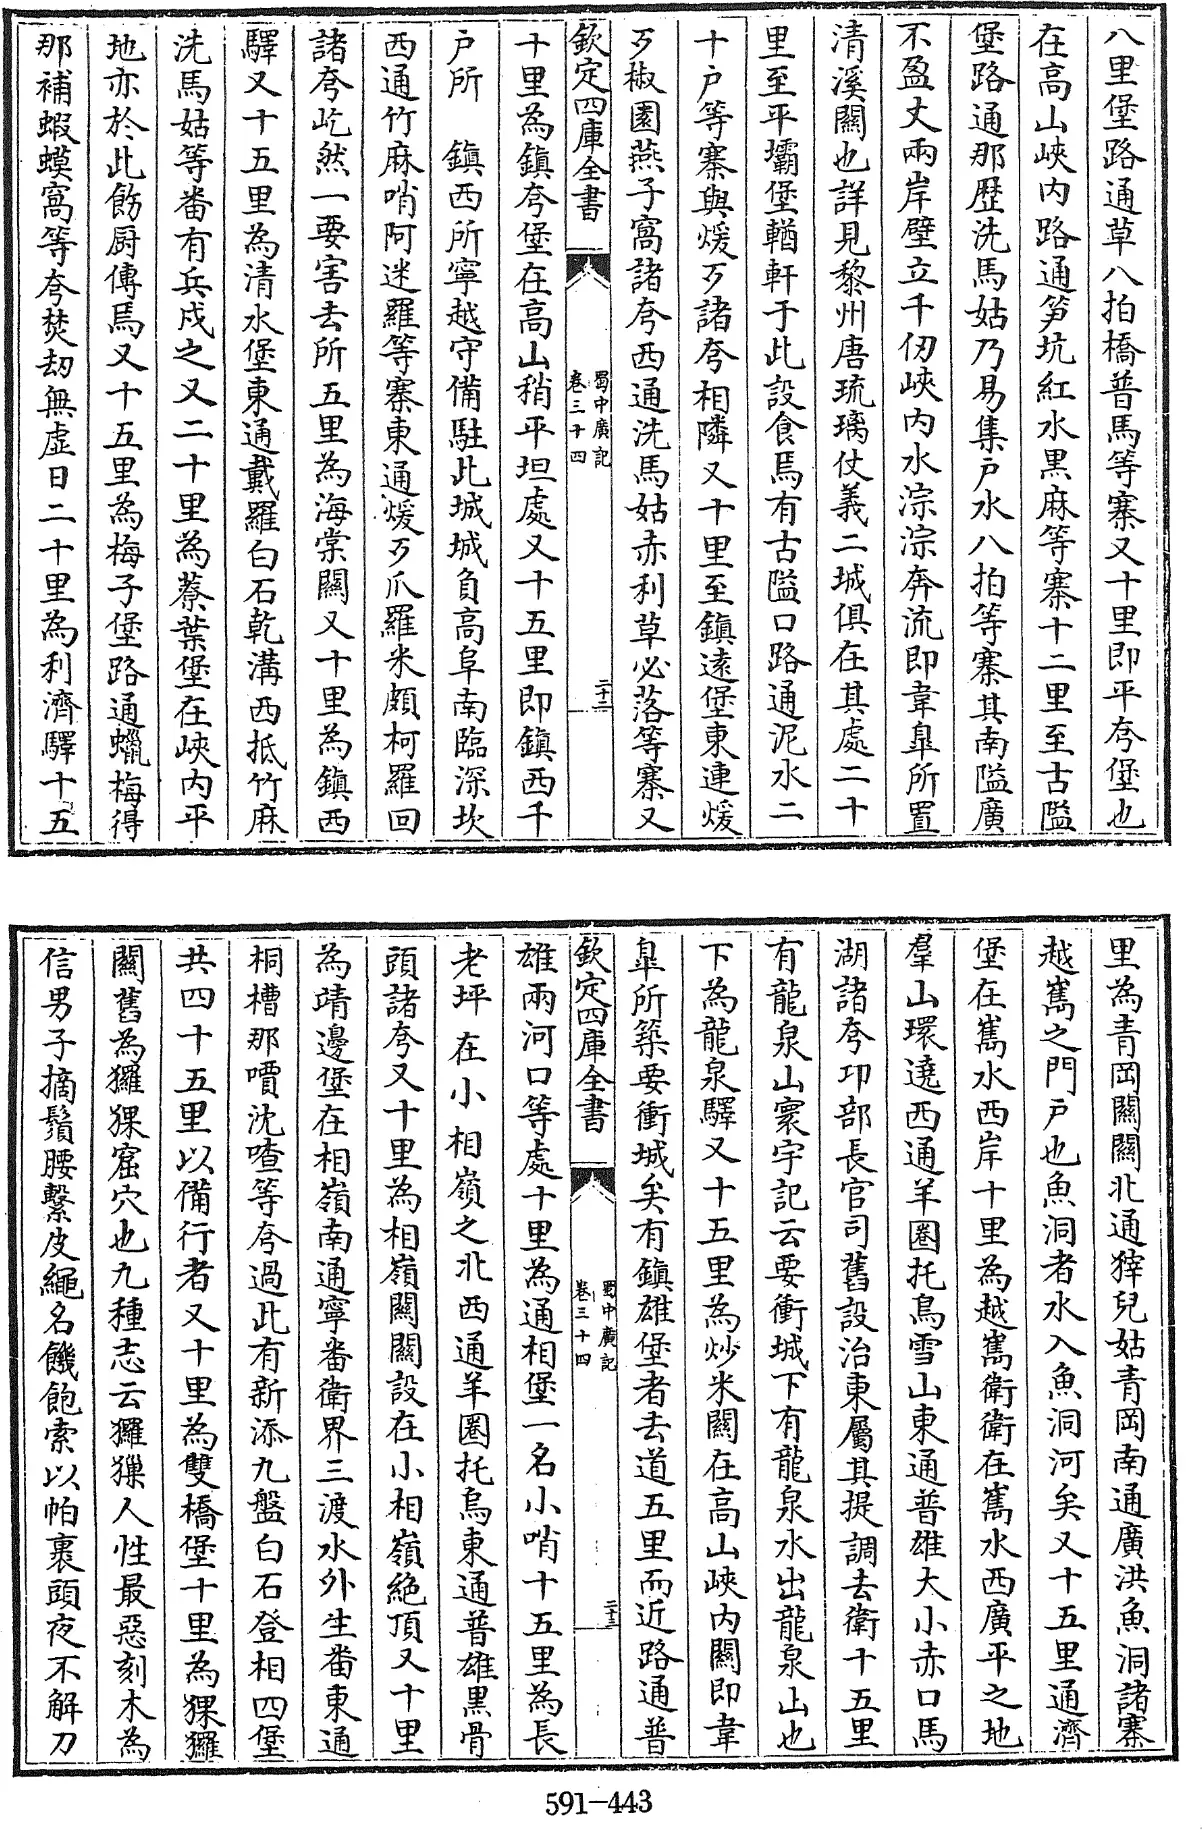 八里堡路通草八拍橋普馬等寨又十里即平夸堡也
在高山峽内路通笋坑紅水黒麻等寨十二里至古隘
堡路通那歴洗馬姑乃易集户水八拍等寨其南隘廣
不盈丈兩岸壁立千仞峽内水淙淙奔流即韋臯所置
清溪關也詳見黎州唐琉璃仗義二城俱在其處二十
里至平壩堡輶軒于此設食焉有古隘口路通泥水二
十户等寨與煖歹諸夸相隣又十里至鎮遠堡東連煖
歹椒園燕子窩諸夸西通洗馬姑赤利草必落等寨又
欽定四庫全書
蜀中廣記
卷三十四
二十二
十里為鎮夸堡在高山稍平坦處又十五里即鎮西千
户所　鎮西所寧越守備駐此城城負高阜南臨深坎
西通竹麻哨阿迷羅等寨東通煖歹爪羅米頗柯羅回
諸夸屹然一要害去所五里為海棠關又十里為鎮西
驛又十五里為清水堡東通戴羅白石乾溝西抵竹麻
洗馬姑等番有兵戍之又二十里為蔡葉堡在峽内平
地亦於此飭厨傳焉又十五里為梅子堡路通蠟梅得
那補蝦蟆窩等夸焚刼無虚日二十里為利濟驛十五
里為青岡關關北通㹀兒姑青岡南通廣洪魚洞諸寨
越嶲之門户也魚洞者水入魚洞河矣又十五里通濟
堡在嶲水西岸十里為越嶲衛衛在嶲水西廣平之地
羣山環遶西通羊圈托烏雪山東通普雄大小赤口馬
湖諸夸卭部長官司舊設治東屬其提調去衛十五里
有龍泉山寰宇記云要衝城下有龍泉水出龍泉山也
下為龍泉驛又十五里為炒米關在高山峽内關即韋
臯所築要衝城矣有鎮雄堡者去道五里而近路通普
欽定四庫全書
蜀中廣記
卷三十四
二十三
雄兩河口等處十里為通相堡一名小哨十五里為長
老坪在小相嶺之北西通羊圈托烏東通普雄黒骨
頭諸夸又十里為相嶺關關設在小相嶺絶頂又十里
為靖邊堡在相嶺南通寧番衛界三渡水外生番東通
桐槽那嘖沈喳等夸過此有新添九盤白石登相四堡
共四十五里以備行者又十里為雙橋堡十里為猓玀
關舊為玀猓窟穴也九種志云玀猓人性最惡刻木為
信男子摘鬚腰繫皮繩名饑飽索以帕裹頭夜不解刀
591-443